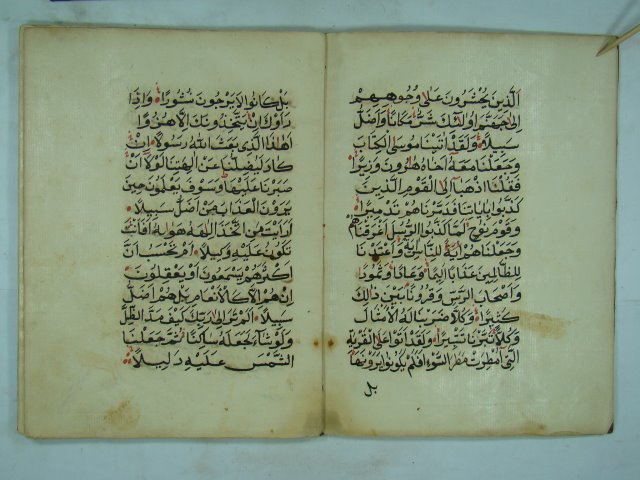 الذين يحشرون على وجوههم
الى جهنم اولئك شر مكانا واضل
سبيلا ولقد اتينا موسى الكتاب
وجعلنا معه اخاه هارون وزيرا
فقلنا اذهبا الى القوم الذين
كذبوا باياتنا فدمرناهم تدميرا
وقوم نوح لما كذبوا الرسل اغرقناهم
وجعلناهم للناس اية واعتدنا
للظالمين عذابا اليما وعادا وثمودا
واصحاب الرس وقرونا بين ذلك
كثيرا وكلا ضربنا له الامثال
وكلا تبرنا تتبيرا ولقد اتوا على القرية
التي امطرت مطر السوء افلم يكونوا يرونها
بل
بل كانوا لا يرجون نشورا واذا
راوك ان يتخذونك الا هزوا
اهذا الذي بعث الله رسولا ان
كاد ليضلنا عن الهتنا لولا ان
صبرنا عليها وسوف يعلمون حين
يرون العذاب من اضل سبيلا
ارايت من اتخذ الهه هواه افانت
تكون عليه وكيلا ام تحسب ان
اكثرهم يسمعون او يعقلون
ان هم الا كالانعام بل هم اضل
سبيلا الم تر الى ربك كيف مد الظل
ولو شاء لجعله ساكنا ثم جعلنا
الشمس عليه دليلا